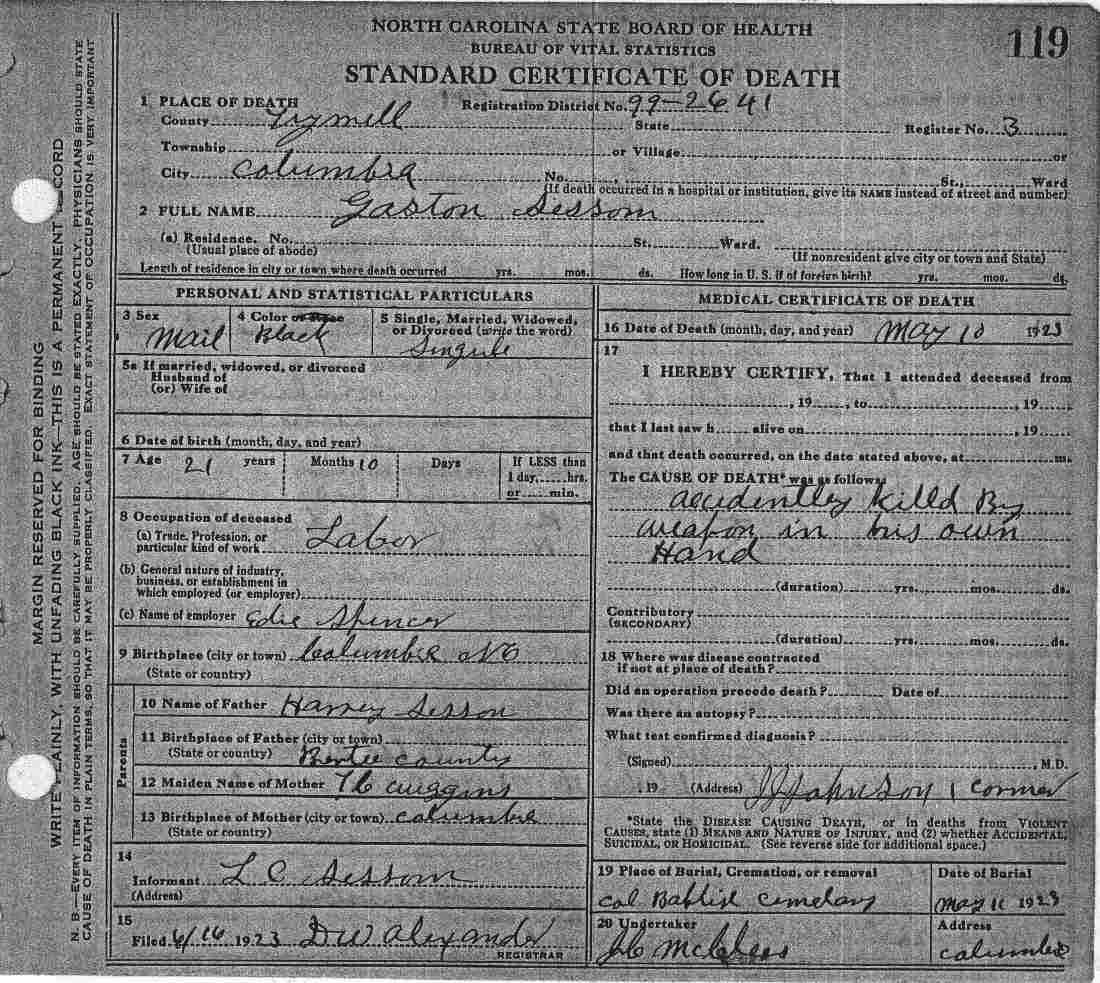 NORTH CAROLINA STATE BOARD OF HEALTH
BUREAU OF VITAL STATISTICS
119
STANDARD CERTIFICATE OF DEATH
1 PLACE OF DEATH Registration District No. 99-2641
County Tyrrell State Register No. 3
Township or Village or
City Columbia No. St., Ward
(If death occurred in a hospital or institution, give its NAME instead of street and number)
2 FULL NAME Gaston Sessom
(a) Residence. No. St. Ward.
(Usual place of abode) (If nonresident give city or town and State)
Length of residence in city or town where death occurred yrs. mos. ds. How long in U. S. if of foreign birth? yrs. mos. ds.
PERSONAL AND STATISTICAL PARTICULARS
3 Sex Mail
4 Color or Race Black
5 Single, Married, Widowed,
or Divorced (write the word)
Single
5a If married, widowed, or divorced
Husband of
(or) Wife of
6 Date of birth (month, day, and year)
7 Age 21 years Months 10 Days If LESS than
1 day, hrs.
or min.
8 Occupation of deceased
(a) Trade, Profession, or
particular kind of work Labor
(b) General nature of industry,
business, or establishment in
which employed (or employer)
(c) Name of employer Edie Spencer
9 Birthplace (city or town) Columbia NC
(State or country)
Parents
10 Name of Father Harvey Sessom
11 Birthplace of Father (city or town)
(State or country) Bertie County
12 Maiden Name of Mother
13 Birthplace of Mother (city or town) Columbia
(State or country)
14
Informant L C Sessom
(Address)
15
Filed 6/16 1923 D W Alexander
REGISTRAR
MEDICAL CERTIFICATE OF DEATH
16 Date of Death (month, day, and year) May 10 1923
17
I HEREBY CERTIFY, That I attended deceased from
, 19 , to , 19
that I last saw h alive on , 19
and that death occurred, on the date stated above, at m.
The CAUSE OF DEATH* was as follows:
accidentley killd By
weapon in his own
Hand
(duration) yrs. mos. ds.
Contributory
(SECONDARY)
(duration) yrs. mos. ds.
18 Where was disease contracted
if not at place of death?
Did an operation precede death? Date of
Was there an autopsy?
What test confirmed diagnosis?
(Signed) , M.D.
, 19 (Address) J J Johnson Corner
*State the DISEASE CAUSING DEATH, or in deaths from VIOLENT
CAUSES, state (1) MEANS AND NATURE OF INJURY, and (2) whether ACCIDENTAL,
SUICIDAL, OR HOMICIDAL. (See reverse side for additional space.)
19 Place of Burial, Cremation, or removal Date of Burial
Col Baptist Cemetary May 11 1923
20 Undertaker Address
McClees Columbia
MARGIN RESERVED FOR BINDING
WRITE PLAINLY, WITH UNFADING BLACK INK—THIS IS A PERMANENT RECORD
N. B.—EVERY ITEM OF INFORMATION SHOULD BE CAREFULLY SUPPLIED. AGE SHOULD BE STATED EXACTLY. PHYSICIANS SHOULD STATE
CAUSE OF DEATH IN PLAIN TERMS, SO THAT IT MAY BE PROPERLY CLASSIFIED. EXACT STATEMENT OF OCCUPATION IS VERY IMPORTANT